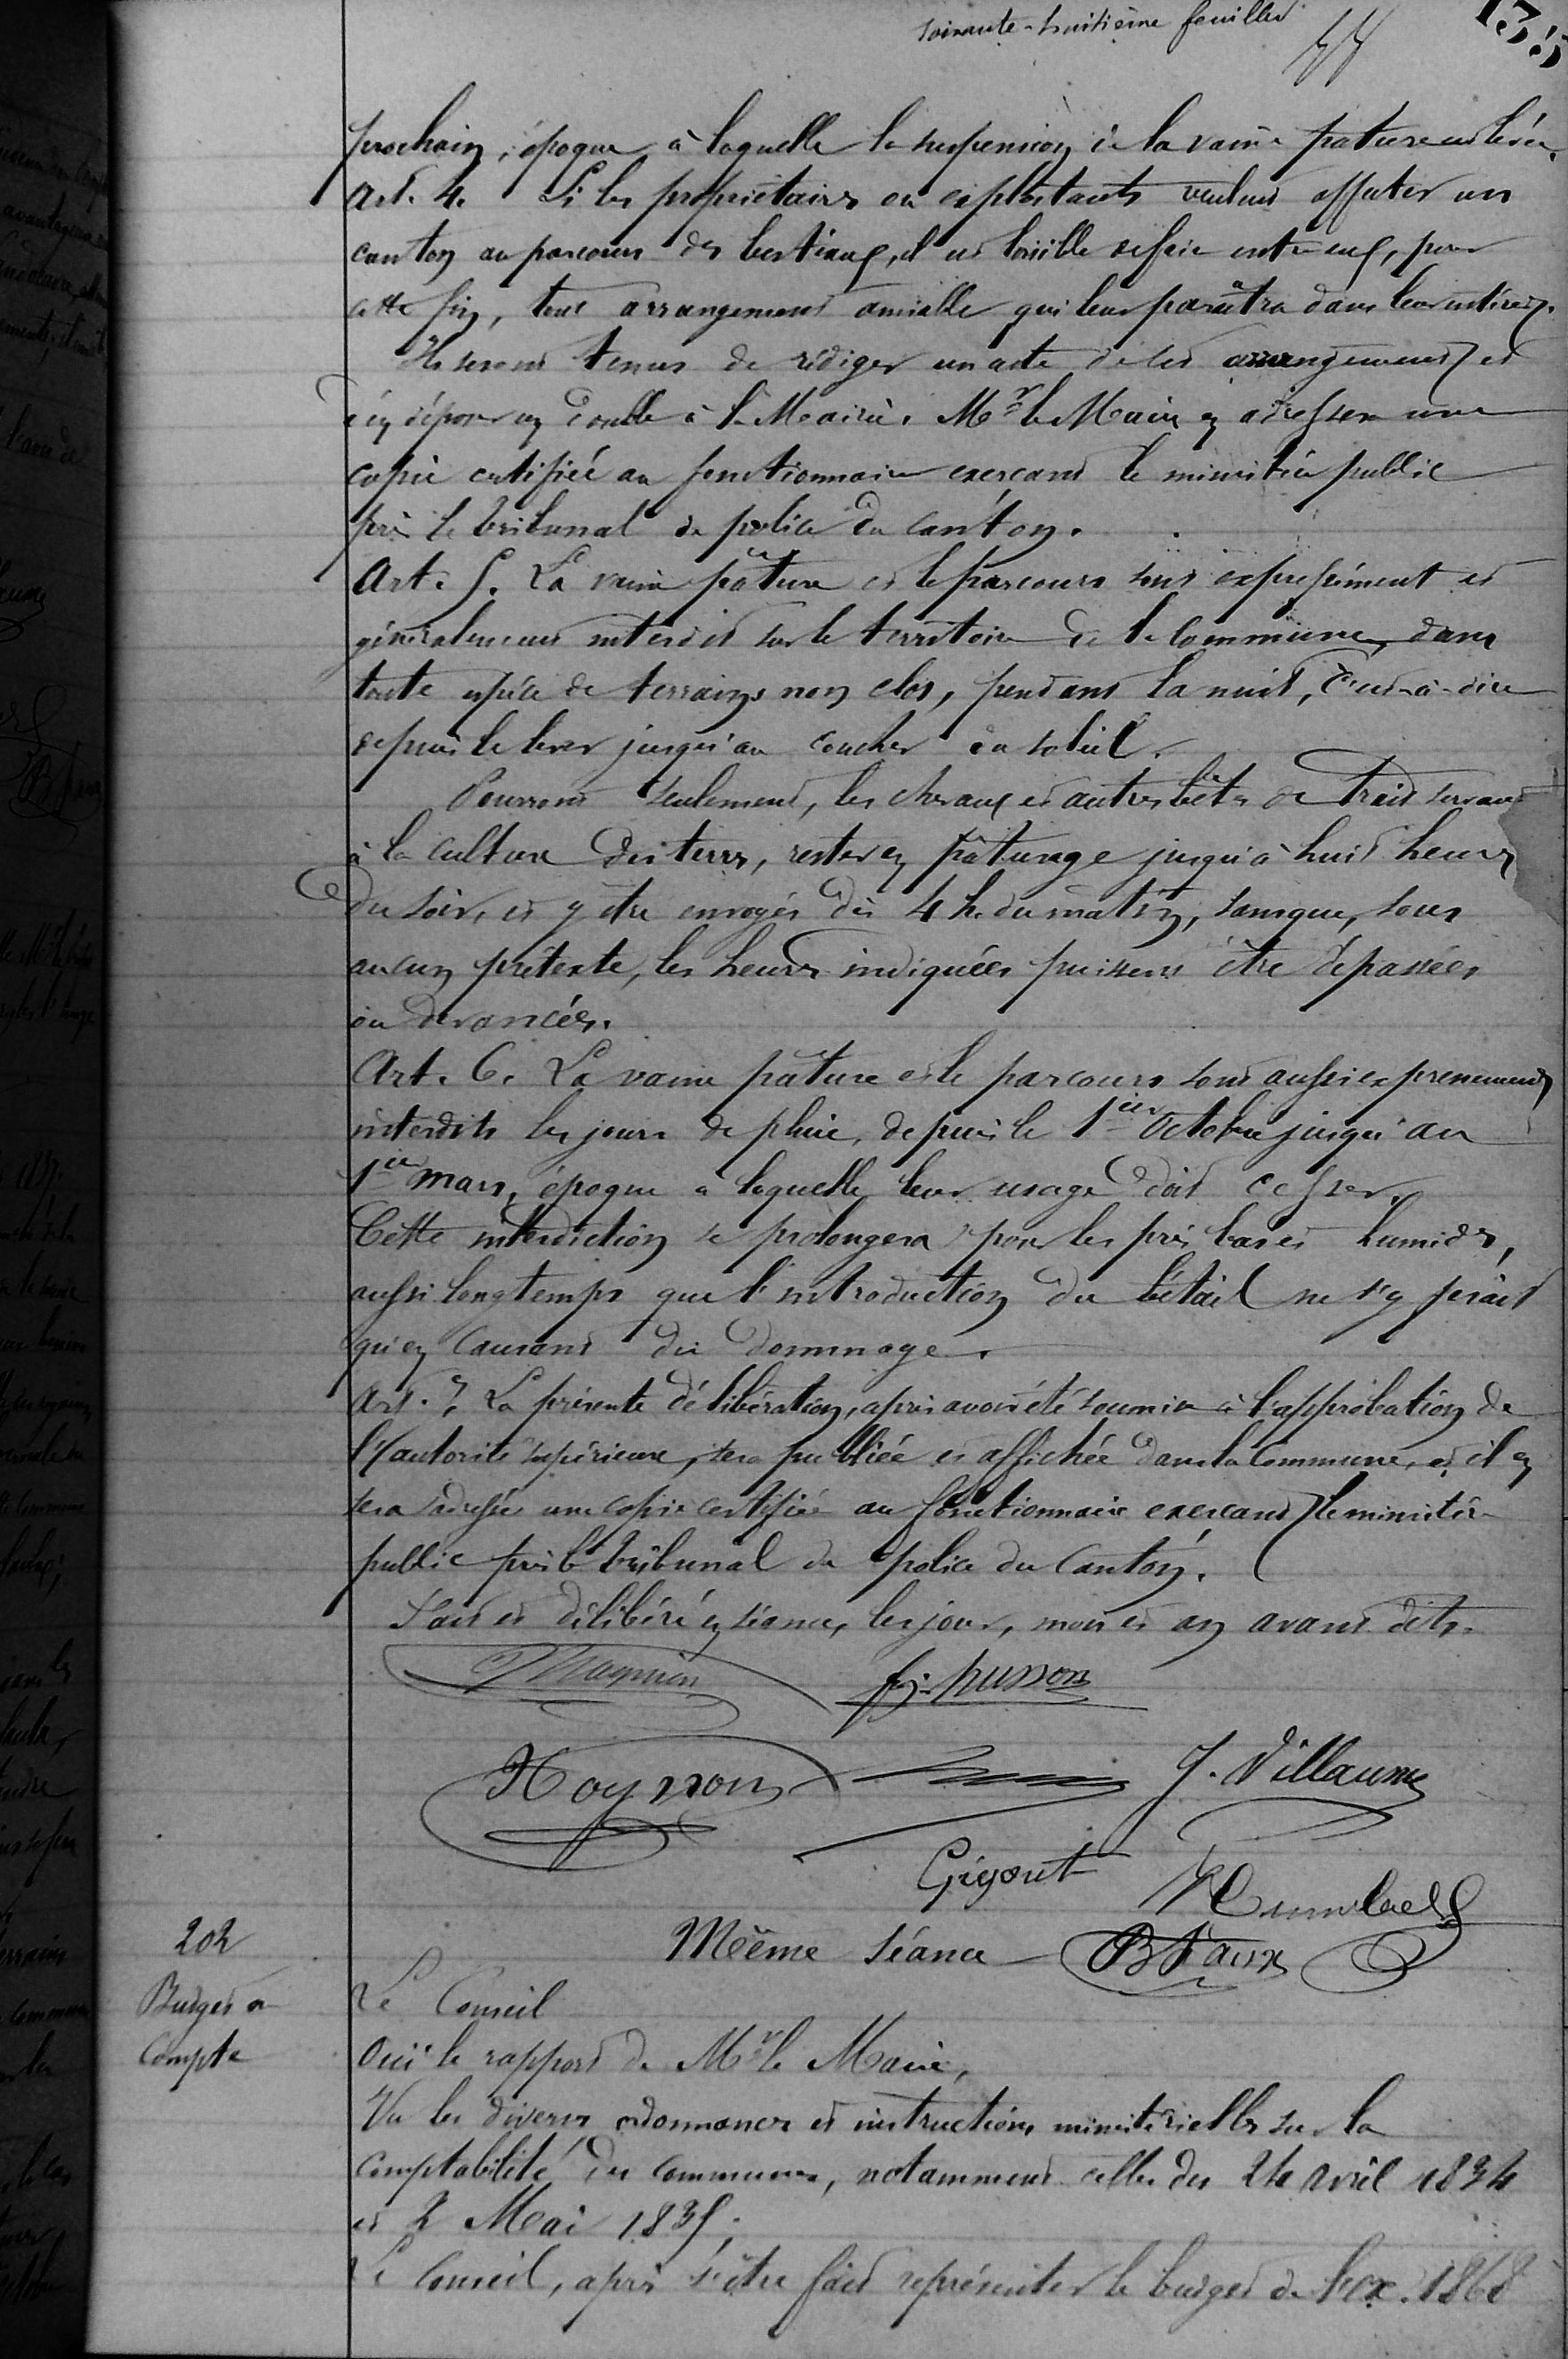 soixante-huitième feuillet
135
prochain, époque à laquelle la suspension de la vaine pature est levée.
Art. 4. Si les propriétaires ou exploitants veulent affecter un
canton au parcours des bestiaux, il est loisible de faire entre eux, pour
cette fin, tout arrangement amiable qui leur paraîtra dans leur intérêt.
Ils seront tenus de rédiger un acte de ces arrangements et
d'en déposer un double à la Mairie. Mr le Maire en adressera une
copie certifiée au fonctionnaire exerçant le ministère public
près le tribunal de police du canton.
Art. 5. La vaine pâture et le parcours sont expressément et
généralement interdits sur le territoire de la Commune, dans
toute espèce de terrains non clos, pendant la nuit, c'est-à-dire
depuis le lever jusqu'au coucher du soleil.
Pourront seulement, les chevaux et autres bêtes de trait servant
à la culture des terres, rester en pâturage jusqu'à huit heures
du soir, et y être envoyés dès 4 h. du matin, sans que, sous
aucun prétexte, les heures indiquées puissent être dépassées
ou devancées.
Art. 6. La vaine pâture et le parcours sont aussi expressément
interdits les jours de pluie, depuis le 1ier Octobre jusqu'au
1ier mars, époque à laquelle leur usage doit cesser.
Cette interdiction se prolongera pour les prés bas et humides,
aussi longtemps que l'introduction du bétail ne s'y ferait
qu'en causant du dommage.
Art. 7. La présente délibération, après avoir été soumise à l'approbation de
l'autorité supérieure, sera publiée et affichée dans la Commune, et il en
sera adressé une copie certifiée au fonctionnaire exerçant le ministère
public près le tribunal de police du Canton.
Fait et délibéré en séance, les jour, mois et an avant dits.
husson
Noynon J. Villaume
Gigout
Même séance
202
Budget et
Compte
Le Conseil
Ouï le rapport de Mr le Maire,
Vu les diverses ordonnances et instructions ministérielles sur la
comptabilité des communes, notamment celles des 24 avril 1834
et 2 Mai 1835;
Le Conseil, après s'être fait représenter le budget de l'ex. 1868